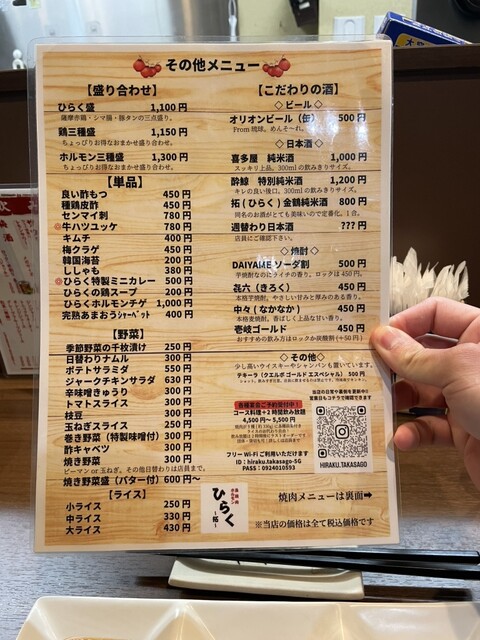 その他メニュー
【盛り合わせ】
ひらく盛 1,100円
薩摩赤鶏・シマ腸・豚タンの三点盛り。
鶏三種盛 1,150円
ちょっぴりお得なおまかせ盛り合わせ。
ホルモン三種盛 1,300円
ちょっぴりお得なおまかせ盛り合わせ。
【単品】
良い酢もつ 450円
種鶏皮酢 450円
センマイ刺 780円
牛ハツユッケ 780円
キムチ 400円
梅クラゲ 450円
韓国海苔 200円
ししゃも 380円
ひらく特製ミニカレー 500円
ひらくの鶏スープ 200円
ひらくホルモンチゲ 1,000円
完熟あまおうシャーベット 400円
【野菜】
季節野菜の千枚漬け 250円
日替わりナムル 300円
ポテトサラミダ 550円
ジャークチキンサラダ 630円
辛味噌きゅうり 300円
トマトスライス 300円
枝豆 300円
玉ねぎスライス 250円
巻き野菜(特製味噌付) 300円
酢キャベツ 300円
焼き野菜 300円
ピーマン or 玉ねぎ。その他日替わりは店員まで。
焼き野菜盛り(バター付) 600円〜
【ライス】
小ライス 250円
中ライス 330円
大ライス 430円
【こだわりの酒】
◇ ビール ◇
オリオンビール(缶) 500円
From 琉球。めんそ〜れ。
◇ 日本酒 ◇
喜多屋 純米酒 1,000円
スッキリ上品。300mlの飲みきりサイズ。
酔鯨 特別純米酒 1,200円
キレの良い後口。300mlの飲みきりサイズ。
拓(ひらく)金鶴純米酒 800円
同名のお酒がとても美味いので定番化。1合。
週替わり日本酒 ???円
店員にご確認下さい。
◇ 焼酎 ◇
DAIYAME ソーダ割 500円
芋焼酎なのにライチの香り。ロックは450円。
㐂六(きろく) 450円
本格芋焼酎。やさしい甘みと厚みのある香り。
中々(なかなか) 450円
本格麦焼酎。香ばしく上品な甘い香り。
壱岐ゴールド 450円
おすすめの飲み方はロックか炭酸割(+50円)
◇ その他 ◇
少し高いウイスキーやシャンパンも置いています。
テキーラ(クエルボ ゴールド エスペシャル) 500円
各種宴会ご予約受付中!
コース料理+2時間飲み放題
4,500円〜5,500円
当店の日常や裏側を更新中!!
営業日もコチラで確認できます
HIRAKU.TAKASAGO
フリーWi-Fiご利用いただけます
ID:hiraku.takasago-5G
PASS:0924010593
ひらく
〜拓〜
焼肉メニューは裏面➡
※当店の価格は全て税込価格です